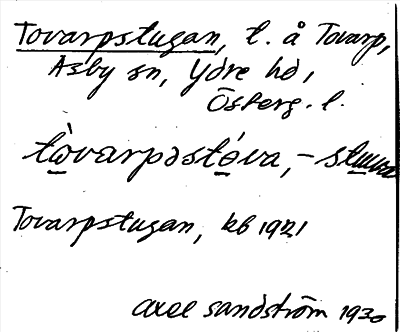 Tovarpstugan, t. å Tovarp,
Asby sn, Ydre hd,
Österg. l.
tòvarpəstóva, -
Tovarpstugan, kb 1921
Axel Sandström 1930